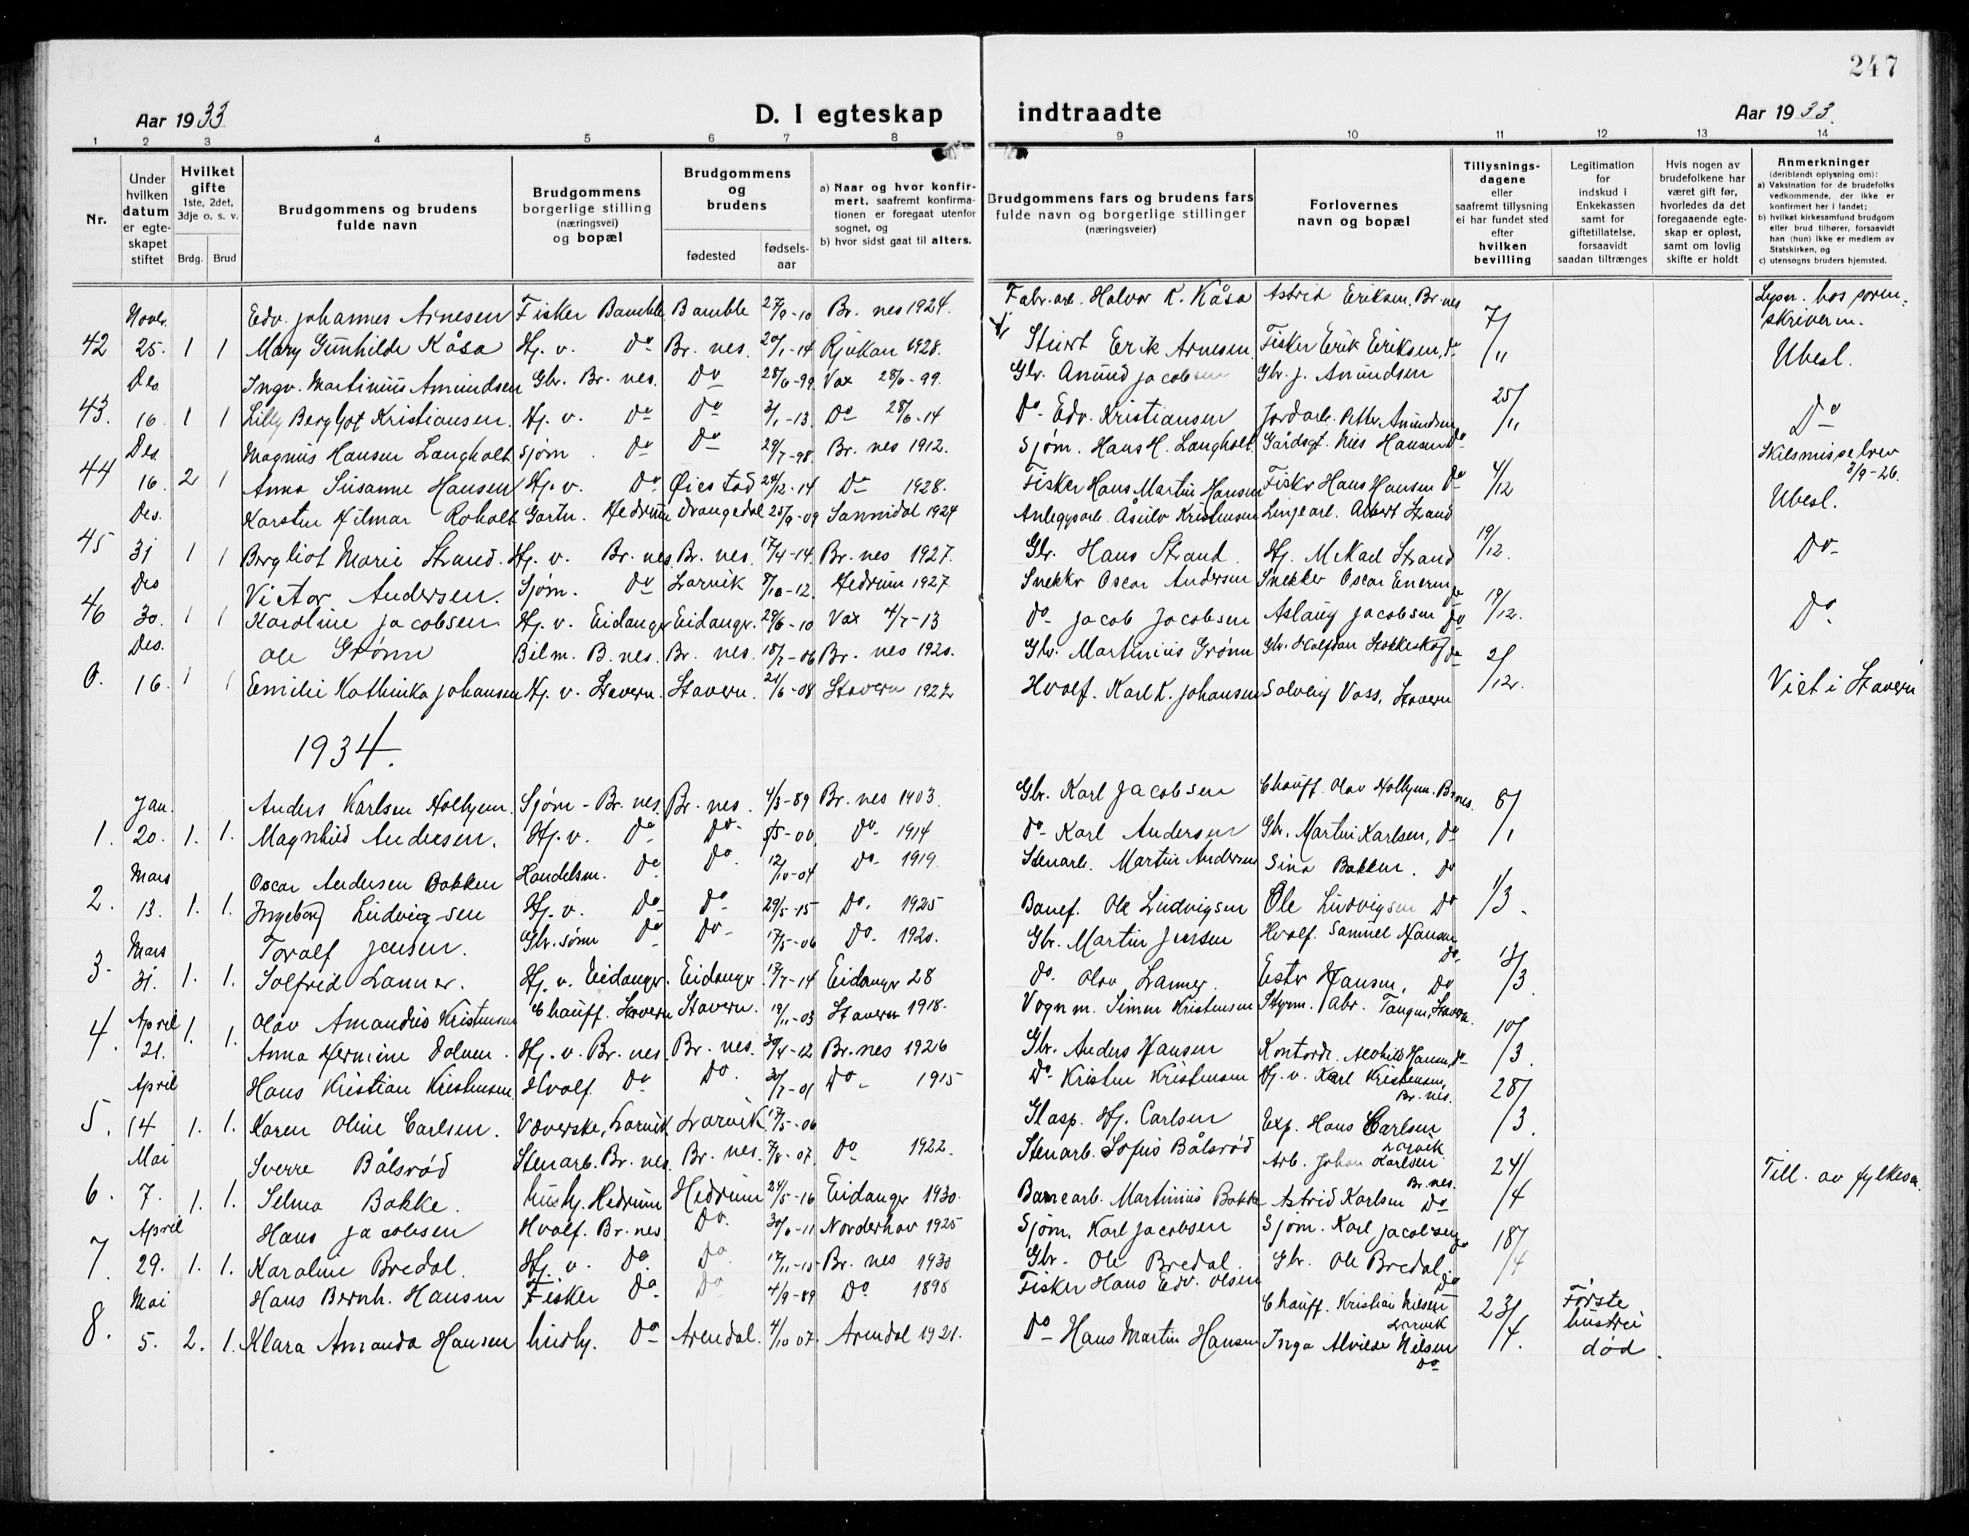 247
Aar 1933
D. I egteskap
indtraadte
Aar 1933.
1 2 3 4 5 6 7 8 9 10 11 12 13 14
Nr.
Under hvilken datum er egteskapet stiftet
Hvilket gifte 1ste, 2det, 3dje o. s. v.
Brdg. Brud
Brudgommens og brudens fulde navn
Brudgommens borgerlige stilling (næringsvei) og bopæl
Brudgommens og brudens
fødested
fødselsaar
a) Naar og hvor konfirmert, saafremt konfirmationen er foregaat utenfor sognet, og
b) hvor sidst gaat til alters.
Brudgommens fars og brudens fars fulde navn og borgerlige stillinger (næringsveier)
Forlovernes navn og bopæl
Tillysningsdagene eller saafremt tillysning ei har fundet sted efter hvilken bevilling
Legitimation for indskud i Enkekassen samt for giftetillatelse, forsaavidt saadan tiltrænges
Hvis nogen av brudefolkene har været gift før, hvorledes da det foregaaende egteskap er opløst, samt om lovlig skifte er holdt
Anmerkninger (deriblandt oplysning om):
a) Vaksination for de brudefolks vedkommende, der ikke er konfirmert her i landet;
b) hvilket kirkesamfund brudgom eller brud tilhører, forsaavidt han (hun) ikke er medlem av Statskirken, og
c) utensogns bruders hjemsted.
Novr. Edv. Johannes Arnesen Fisker Bamble Bamble 27/9-10 Br. nes 1924. Fabr. arb. Halvor K. Kåsa Astrid Eriksen, Br. nes Lyser. hos soren-
42 25. 1 1 Mary Gunhilde Kåsa Hj. v. Do Br. nes. 20/1-14 Rjukan 1928. Stuert Erik Arnesen Fisker Erik Eriksen, do 7/11 skriveren. Ubesl.
Des. Ingv. Martinius Amundsen Gbr. Br. nes. Do 28/6-99 Vax 28/6-99. Gbr. Amund Jacobsen Gbr. J. Amundsen
43. 16. 1 1 Lilly Bergljot Kristiansen. Hj. v. Do Do 2/1-13 Do 28/6-14 Do Edv. Kristiansen Jordarb. Petter Amundsen 25/11 Do
Des. Magnus Hansen Langholt Sjøm. Do Do 29/7-98. Br. nes 1912. Sjøm. Hans H. Langholt Gårdsgt. Nils Hansen Do Skilsmissebrev
44 16. 2 1 Anna Susanne Hansen Hj. v. Do Øiestad 24/12-14 Do 1928. Fisker Hans Martin Hansen Fisker Hans Hansen Do 4/12 3/9-26. Ubesl.
Des. Karsten Hilmar Roholt Gartn. Hedrum Drangedal 25/9-09 Sannidal 1924 Anlegsarb. Åsulv Kristensen Linjearb. Albert Strand
45 31 1 1 Bergliot Marie Strand. Hj. v. Br. nes Br. nes. 17/4-14. Br. nes 1927. Gbr. Hans Strand. Hj. M. Karl Strand 19/12. Do
Des Victor Andersen. Sjøm. Do Larvik 8/10-12. Hedrum 1927. Snekker Oscar Andersen Snekker Oscar
46 30. 1 1 Karoline Jacobsen Hj. v. Eidanger Eidangr. 29/6-10 Vax 4/7-13 Do Jacob Jacobsen Aslaug Jacobsen Do 19/12. Do
Des. Ole Grønn Bilm. B. nes. Br. nes. 18/7-06 Br. nes 1920. Gbr. Martinius Grønn Gbr. Halfdan Stokkeskog Do
0. 16. 1 1 Emilie Kathinka Johansen Hj. v. Stavern. Stavern. 21/6-08 Stavern 1922 Hvalf. Karl K. Johansen Solveig Voss, Stavern 2/12. Viet i Stavern
1934.
Jan. Anders Karlsen Holhjem. Sjøm - Br. nes. Br. nes. 4/3-89 Br. nes 1903. Gbr. Karl Jacobsen Chauff. Olav Holhjem. Br. nes.
1. 20. 1. 1. Magnhild Andersen. Hj. v. Do Do 5/5-00 Do 1914 Do Karl Andersen Gbr. Martin Karlsen, Do 8/1
Mars Oscar Andersen Bakken Handelsm. Do Do 12/10-04 Do 1919. Stenarb. Martin Andersen Sina Bakken. Do
2. 13. 1. 1. Ingeborg Ludvigsen Hj. v. Do Do 29/5-15 Do. 1925 Banef. Ole Ludvigsen Ole Ludvigsen Do 1/3
Mars Toralf Jensen. Gbr. sønn Do Do 17/5-06 Do. 1920. Gbr. Martin Jensen Hvalf. Samuel Hansen Do.
3. 31. 1. 1. Solfrid Lanner. Hj. v. Eidangr. Eidangr. 17/7-14 Eidangr 28 Do. Olav Lanner. Ester Hansen, Do
April Olav Amandus Kristensen Chauff. Stavern Stavern. 19/11-03 Stavern 1918. Vognm. Simon Kristensen Styrm. Abr. Tangen, Stavern.
4. 21. 1. 1. Anna Hermine Dolven. Hj. v. Br. nes. Br. nes. 30/4-12 Br. nes 1926 Gbr. Anders Hansen Kontord. Hansen, Do 10/3.
April Hans Kristian Kristensen Hvalf. Do Do. 30/7-01 Do 1915 Do Kristen Kristensen Hj. v. Karl Kristensen, Br. nes.
5. 14 1. 1. Karen Oline Carlsen. Væverske, Larvik Larvik 17/5-06 Glasp. Hj. Carlsen Exp. Hans Carlsen Larvik 28/3.
Mai Sverre Bålsrød Stenarb. Br. nes. Br. nes. 7/8-07. Do 1922. Stenarb. Sofus Bålsrød Arb. Johan Karlsen Br. nes.
6. 7. 1. 1. Selma Bakke. hushj. Hedrum Hedrum 24/5-16 Eidangr 1930. Banearb. Martinius Bakke Astrid Karlsen Do 24/4 Till. av fylkesm.
April Hans Jacobsen Hvalf. Br. nes Do. 30/6-11 Norderhov 1925 Sjøm. Karl Jacobsen Sjøm. Karl Jacobsen Do
7. 29. 1. 1. Karoline Bredal. Hj. v. Do. Do 17/11-15 Br. nes 1930 Gbr. Ole Bredal. Gbr. Ole Bredal. Do 18/4
Mai Hans Bernh. Hansen Fisker Do. Do 4/9-89 Do. 1898 Fisker Hans Edv. Olsen Chauff. Kristian Nilsen Larvik Første
8. 5. 2. 1. Klara Amanda Hansen hushj. Do Arendal. 4/10 07. Arendal 1921. Do Hans Martin Hansen Inga Alvilde Nilsen Do 23/4. hustru død.